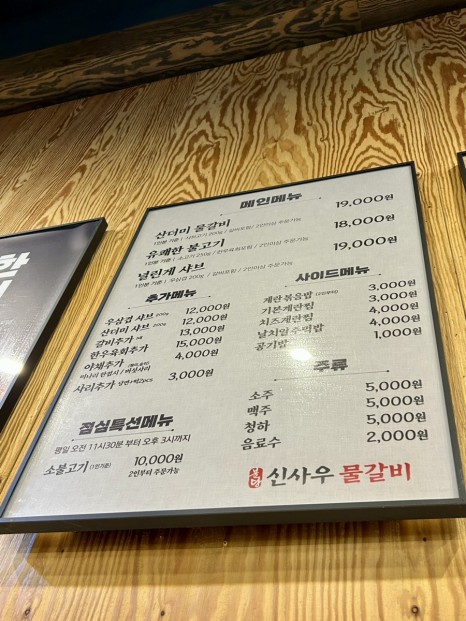 메인메뉴
산더미 물갈비 19,000원
유쾌한 불고기 18,000원
1인분 기준 | 소고기 210g / 한우육회포함 / 2인이상 주문가능
널린게 샤브 19,000원
1인분 기준 | 우삼겹 200g / 갈비포함 / 2인이상 주문가능
추가메뉴
우삼겹 샤브 200g 12,000원
산더미 샤브 200g 12,000원
갈비추가 13,000원
한우육회추가 15,000원
야채추가 4,000원
미나리 한접시 / 버섯사리
사리추가 당면+떡2pcs 3,000원
사이드메뉴
계란볶음밥 (2인부터) 3,000원
기본계란찜 3,000원
치즈계란찜 4,000원
날치알주먹밥 4,000원
공기밥 1,000원
주류
소주 5,000원
맥주 5,000원
청하 5,000원
음료수 2,000원
점심특선메뉴
평일 오전 11시30분 부터 오후 3시까지
소불고기 (1인기준) 10,000원
2인부터 주문가능
신사우 물갈비